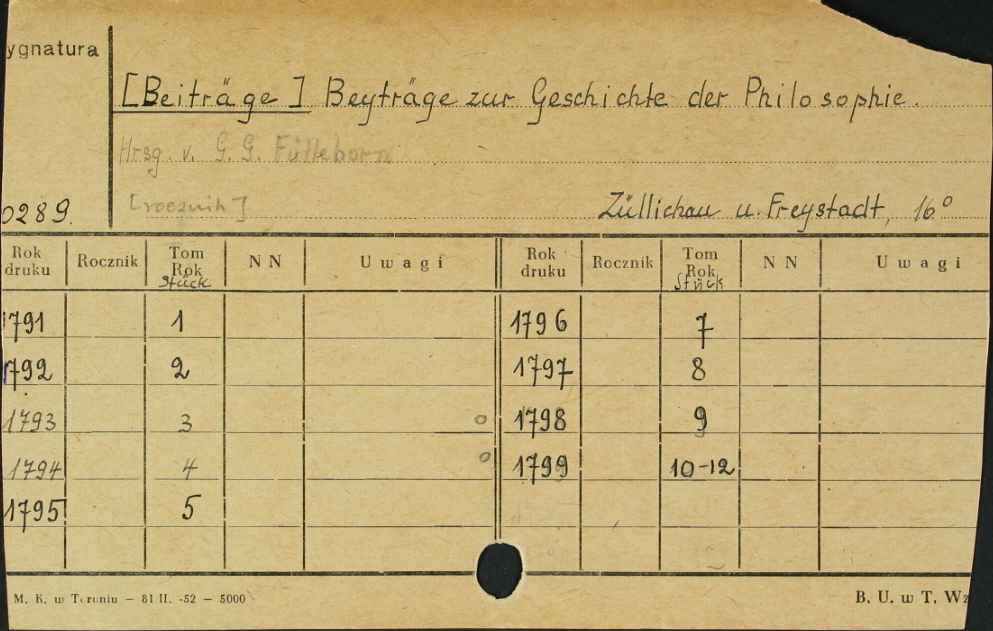 ygnatura
[Beiträge] Beyträge zur Geschichte der Philosophie.
Hrsg. v. G. G. Fülleborn
[rocznik]
0289. Züllichau u. Freystadt, 16°
Rok druku Rocznik Tom Rok Stück NN Uwagi Rok druku Rocznik Tom Rok Stück NN Uwagi
1791 1 1796 7
1792 2 1797 8
1793 3 o 1798 9
1794 4 o 1799 10-12
1795 5
M. K. w Toruniu — 81 II. -52 — 5000 B. U. w T. Wz